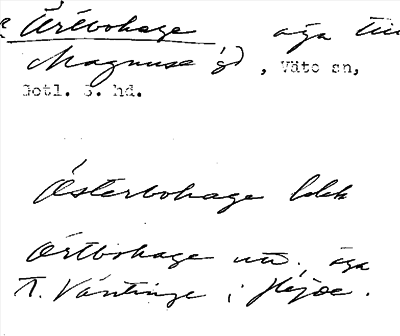 Örtbohage äga till
Magnuse gd, Väte sn,
Gotl. S. hd.
Österbohage
Örtbohage utm. äga
t. Väntinge i Hejde.